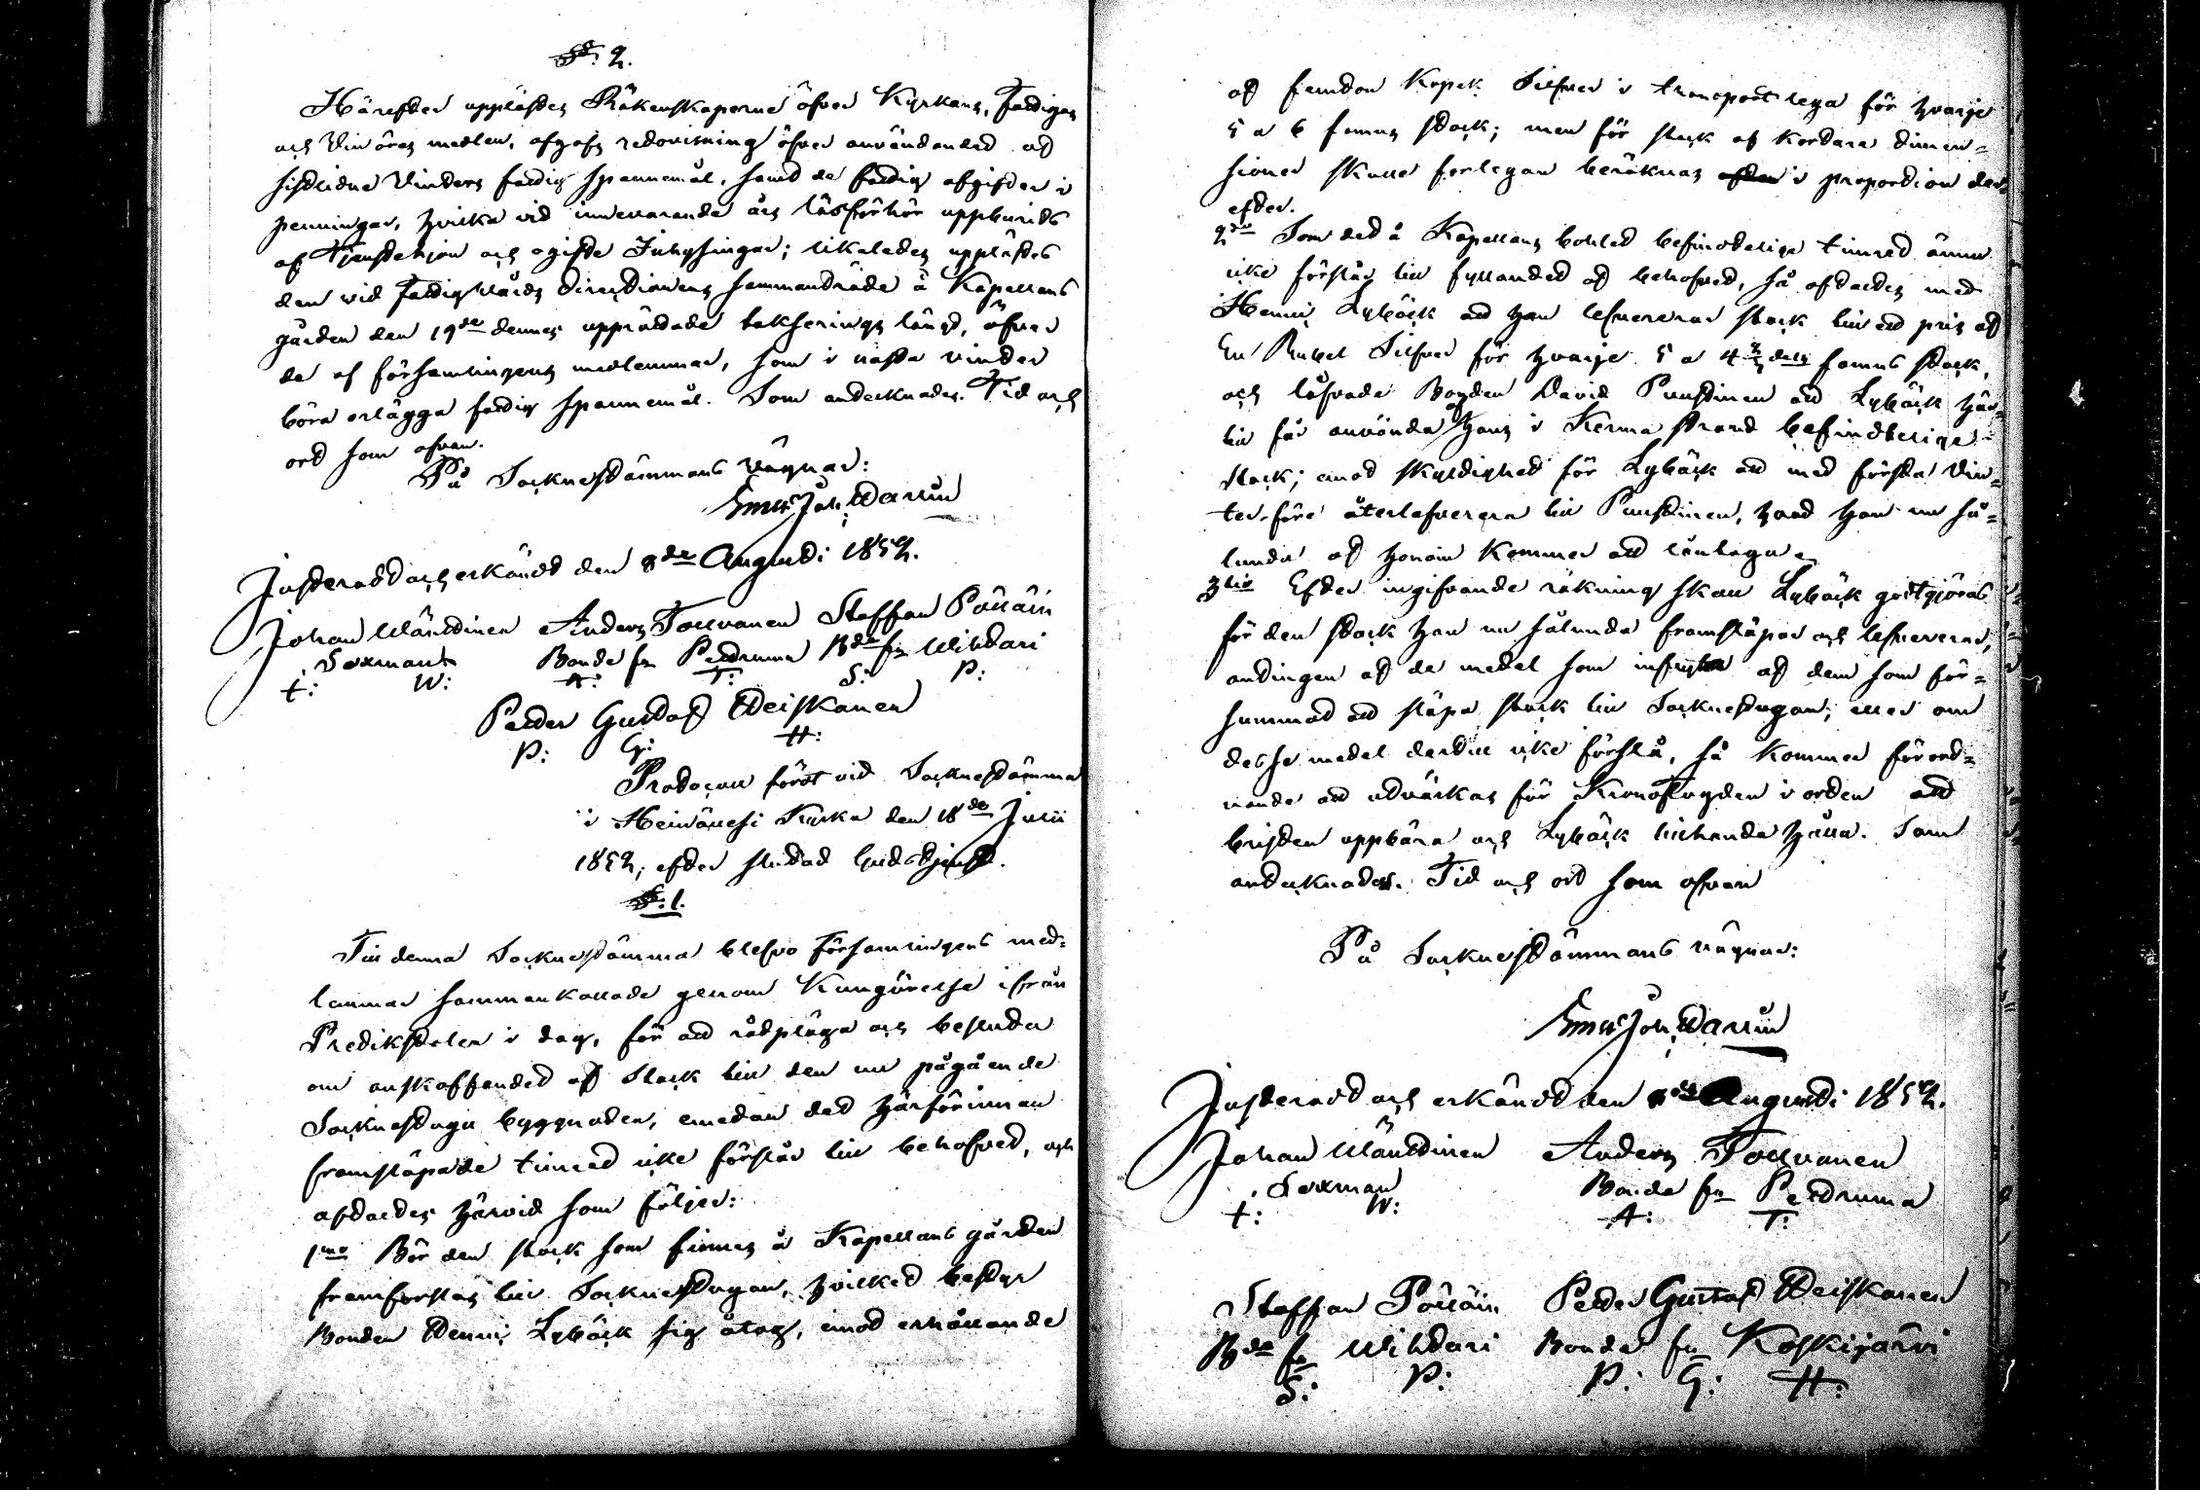 § 2.
Härefter upplästes Räkenskaperne öfver Kyrkans, Fattigas
och Vin öres medlen, afgafs redovisning öfver användandet af
sistlidne Vinters fattig spannemål, samt de fattig afgifter i
penningar, hvilka vid innevarande års läsförhör uppburits
af Tjenstehjon och ogifte Inhysingar; likaledes upplästes
den vid Fattigvårds Directionens sammanträde å Kapellans
gården den 19de dennes upprättade taxerings längd, öfver
de af församlingens medlemmar, som i nästa vinter
böra erlägga fattig spannemål. Som antecknades. Tid och
ort som ofvan.
På Socknestämmans vägnar:
Joh. Wallin
Justeradt och erkändt den 8de Augusti 1852.
Johan Mänttinen Anders Tolvanen Staffan Pölläin
Sexman Bonde fr Petruma Bde fr Mihtari
t: W: A: T: S: P:
Petter Gustaf Heiskanen
P: G: H:
Protocoll fördt vid Sockne stämma
i Heinävesi Kyrka den 18de Julii
1852, efter slutad Gudstjenst.
§ 1.
Till denna Sockne stämma blefvo Församlingens med-
lemmar sammankallade genom Kungörelse ifrån
Predikstolen i dag, för att rådpläga och besluta
om anskaffandet af stock till den nu pågående
Sockne stugu byggnaden, emedan det härförinnan
framsläpade timret icke förslår till behofvet, och
aftaltes härvid som följer:
1mo Bör den stock som finnes å Kapellans gården
framforslas till Sockne stugan, hvilket bestyr
Bonden Henric Lybäck sig åtog, emot erhållande
af femton Kopek Silfver i transport lega för hvarje
5 a 6 famns stock; men för stock af kortare dimen-
sioner skulle forlegan beräknas efter i proportion der-
efter.
2do Som det å Kapellans bohlet befinteliga timret ännu
icke förslår till fyllandet af behofvet, så aftaltes med
Henric Lybäck att han leverera stock till ett pris af
En Rubel Silfver för hvarje 5 a 4 dels famns stock,
och låfvade Bonden David Puustinen att Lybäck här-
till får använda hans i Kerma strand befintelige
stock; emot skyldighet för Lybäck att med första Vin-
ter-före återlefverera till Puustinen, hvad han nu så-
lunda af honom kommer att låntaga.
3tio Efter ingifvande räkning skall Lybäck godtgöras
för den stock han nu sålunda framsläpar och lefvererar,
antingen af de medel som influta af dem som för-
summat att släpa stock till Sockne stugan; eller om
desse medel dertill icke förslå, så kommer förord-
nande att utvärkas för Kronofogden i orten att
bristen uppbära och Lybäck tillhanda hålla. Som
antecknades. Tid och ort som ofvan
På Sockne stämmans vägnar:
Joh. Wallin
Justeradt och erkändt den 8de Augusti 1852.
Johan Mänttinen Anders Tolvanen
Sexman Bonde fr Petruma
t: W: A: T:
Staffan Pöllöin Petter Gustaf Heiskanen
Bde fr Mihtari Bonde fr Koskijärvi
S: P: P: G: H: